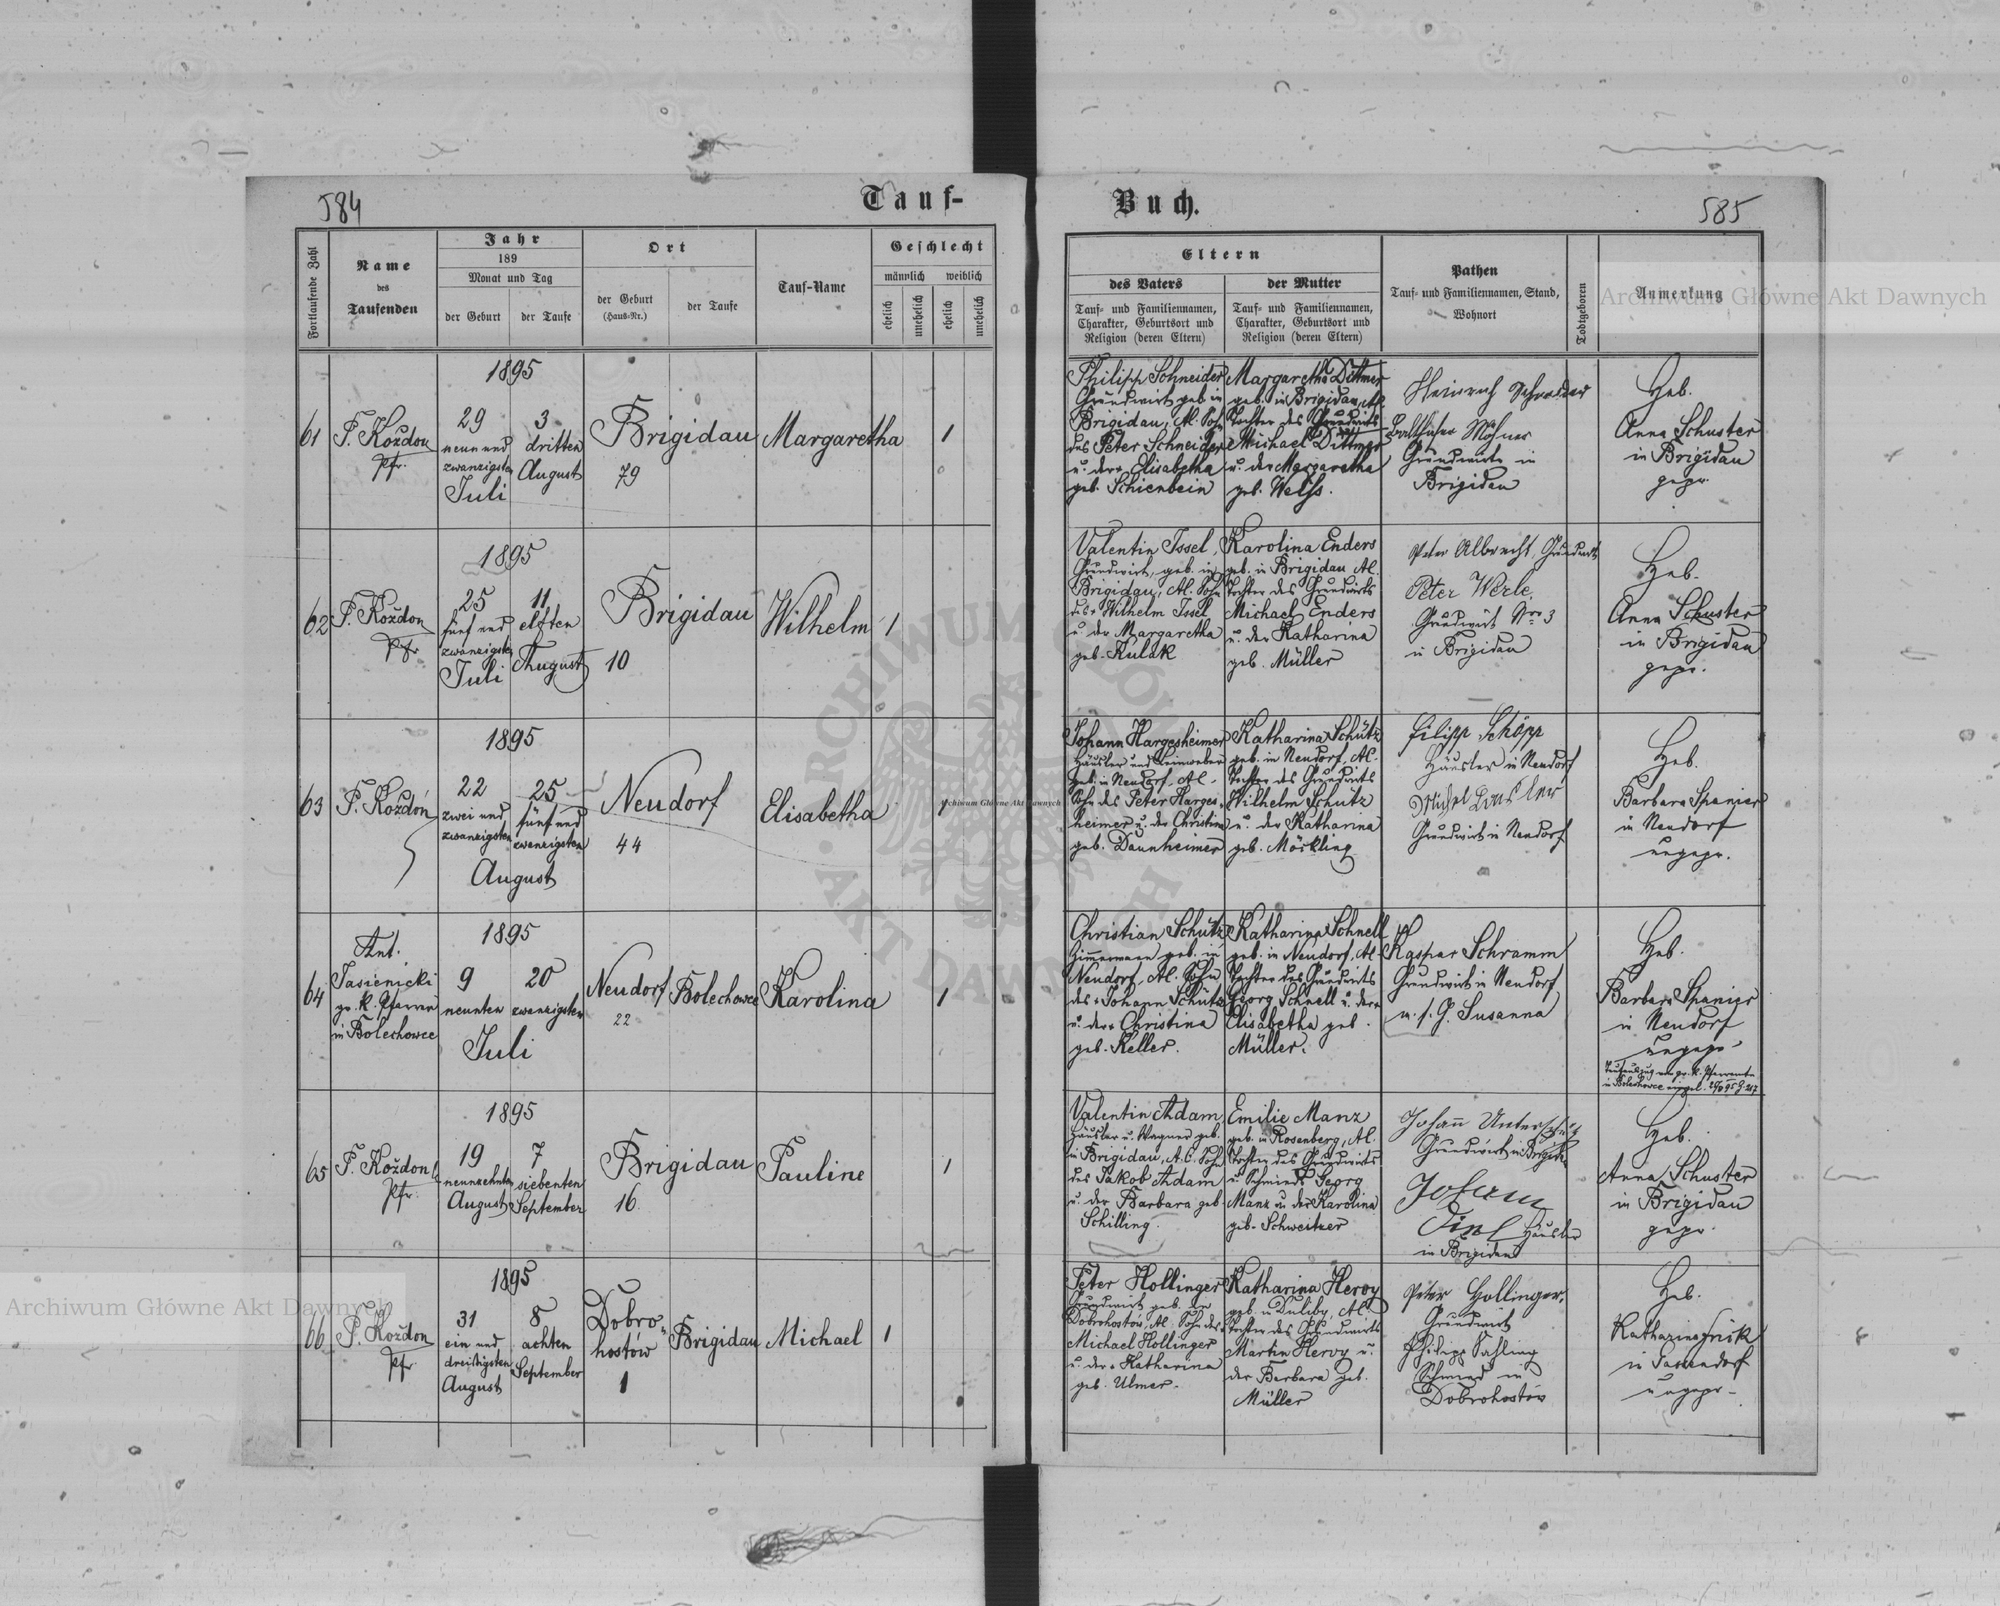 584
Tauf-
Fortlaufende Zahl
Name
des
Taufenden
Jahr
189
Monat und Tag
der Geburt
der Taufe
Ort
der Geburt
(Haus-Nr.)
der Taufe
Tauf-Name
Geschlecht
männlich
weiblich
ehelich
unehelich
ehelich
unehelich
61
F. Koždon
Pfr.
1895
29
neun und
zwanzigsten
Juli
3
dritten
August
Brigidau
79
Margaretha
1
62
F. Koždon
Pfr
1895
25
fünf und
zwanzigsten
Juli
11
elften
August
Brigidau
10
Wilhelm
1
63
F. Koždon
1895
22
zwei und
zwanzigsten
25
fünf und
zwanzigsten
August
Neudorf
44
Elisabetha
1
64
Ant.
Jasienicki
gr. k. Pfarrer
in Bolechowce
1895
9
neunten
20
zwanzigsten
Juli
Neudorf
22
Bolechowce
Karolina
1
65
F. Koždon
Pfr.
1895
19
neunzehnten
August
7
siebenten
September
Brigidau
16
Pauline
1
66
F. Koždon
Pfr
1895
31
ein und
dreißigsten
August
8
achten
September
Dobro-
hostów
1
Brigidau
Michael
1
Buch.
585
Eltern
des Vaters
Tauf- und Familiennamen,
Charakter, Geburtsort und
Religion (deren Eltern)
der Mutter
Tauf- und Familiennamen,
Charakter, Geburtsort und
Religion (deren Eltern)
Pathen
Tauf- und Familiennamen, Stand,
Wohnort
Todtgeboren
Anmerkung
Philipp Schneider
Grundwirt geb. in
Brigidau, A. Sohn
des Peter Schneider
u. der Elisabetha
geb. Schienbein
Margaretha Dittmer
geb. in Brigidau, A.
Tochter des Grundwirts
Michael Dittmer
u. der Margaretha
geb. Welss.
Heinrich Schneider
Balthasar
Grundwirte in
Brigidau
Heb.
Anna Schuster
in Brigidau
gepr.
Valentin Issel,
Grundwirt, geb. in
Brigidau, Al. Sohn
des Wilhelm Issel
u. der Margaretha
geb. Kulak
Karolina Enders
geb. in Brigidau Al.
Tochter des Grundwirts
Michael Enders
u. der Katharina
geb. Müller
Peter Albrecht, Grundwirt
Peter Werle,
Grundwirt Nro 3
in Brigidau
Heb.
Anna Schuster
in Brigidau
gepr.
Johann Hargesheimer
Häusler und Leinweber
geb. in Neudorf, Al.
Sohn des Peter Harges-
heimer u. der Christina
geb. Daunheimer
Katharina Schütz
geb. in Neudorf, Al.
Tochter des Grundwirts
Wilhelm Schütz
u. der Katharina
geb. Möckling
Filipp Schöpp
Häusler in Neudorf
Michel
Grundwirt in Neudorf
Heb.
Barbara Spanier
in Neudorf
ungepr.
Christian Schütz
Zimmermann geb. in
Neudorf, Al. Sohn
des Johann Schütz
u. der Christina
geb. Keller.
Katharina Schnell
geb. in Neudorf, Al
Tochter des Grundwirts
Georg Schnell u. der
Elisabetha geb.
Müller.
Kaspar Schramm
Grundwirt in Neudorf
u. s. G. Susanna
Heb.
Barbara Spanier
in Neudorf
ungepr.
Taufauszug vom gr. k. Pfarramte
in Bolechowce
Valentin Adam
Häusler u. Wagner geb.
in Brigidau, A. C. Sohn
des Jakob Adam
u. der Barbara geb
Schilling.
Emilie Manz
geb. in Rosenberg, Al.
Tochter des Grundwirts
u. Schmieds Georg
Manz u. der Karolina
geb. Schweitzer
Johann Unterschütz
Grundwirt in Brigidau
Johann
Häusler
in Brigidau
Heb.
Anna Schuster
in Brigidau
gepr.
Peter Hollinger
Grundwirt geb. in
Dobrohostów, Al. Sohn des
Michael Hollinger
u. der Katharina
geb. Ulmer.
Katharina Hervy
geb. in Duliby, Al.
Tochter des Grundwirts
Martin Hervy u.
der Barbara geb.
Müller
Peter Hollinger,
Grundwirt
Philipp Sahling
Schmied in
Dobrohostów
Heb.
Katharina Frik
in
ungepr.
Archiwum Główne Akt Dawnych
Archiwum Główne Akt Dawnych
Archiwum Główne Akt Dawnych